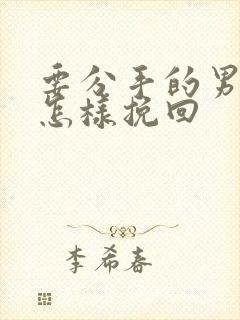 要分手的男
怎樣挽回
李希春